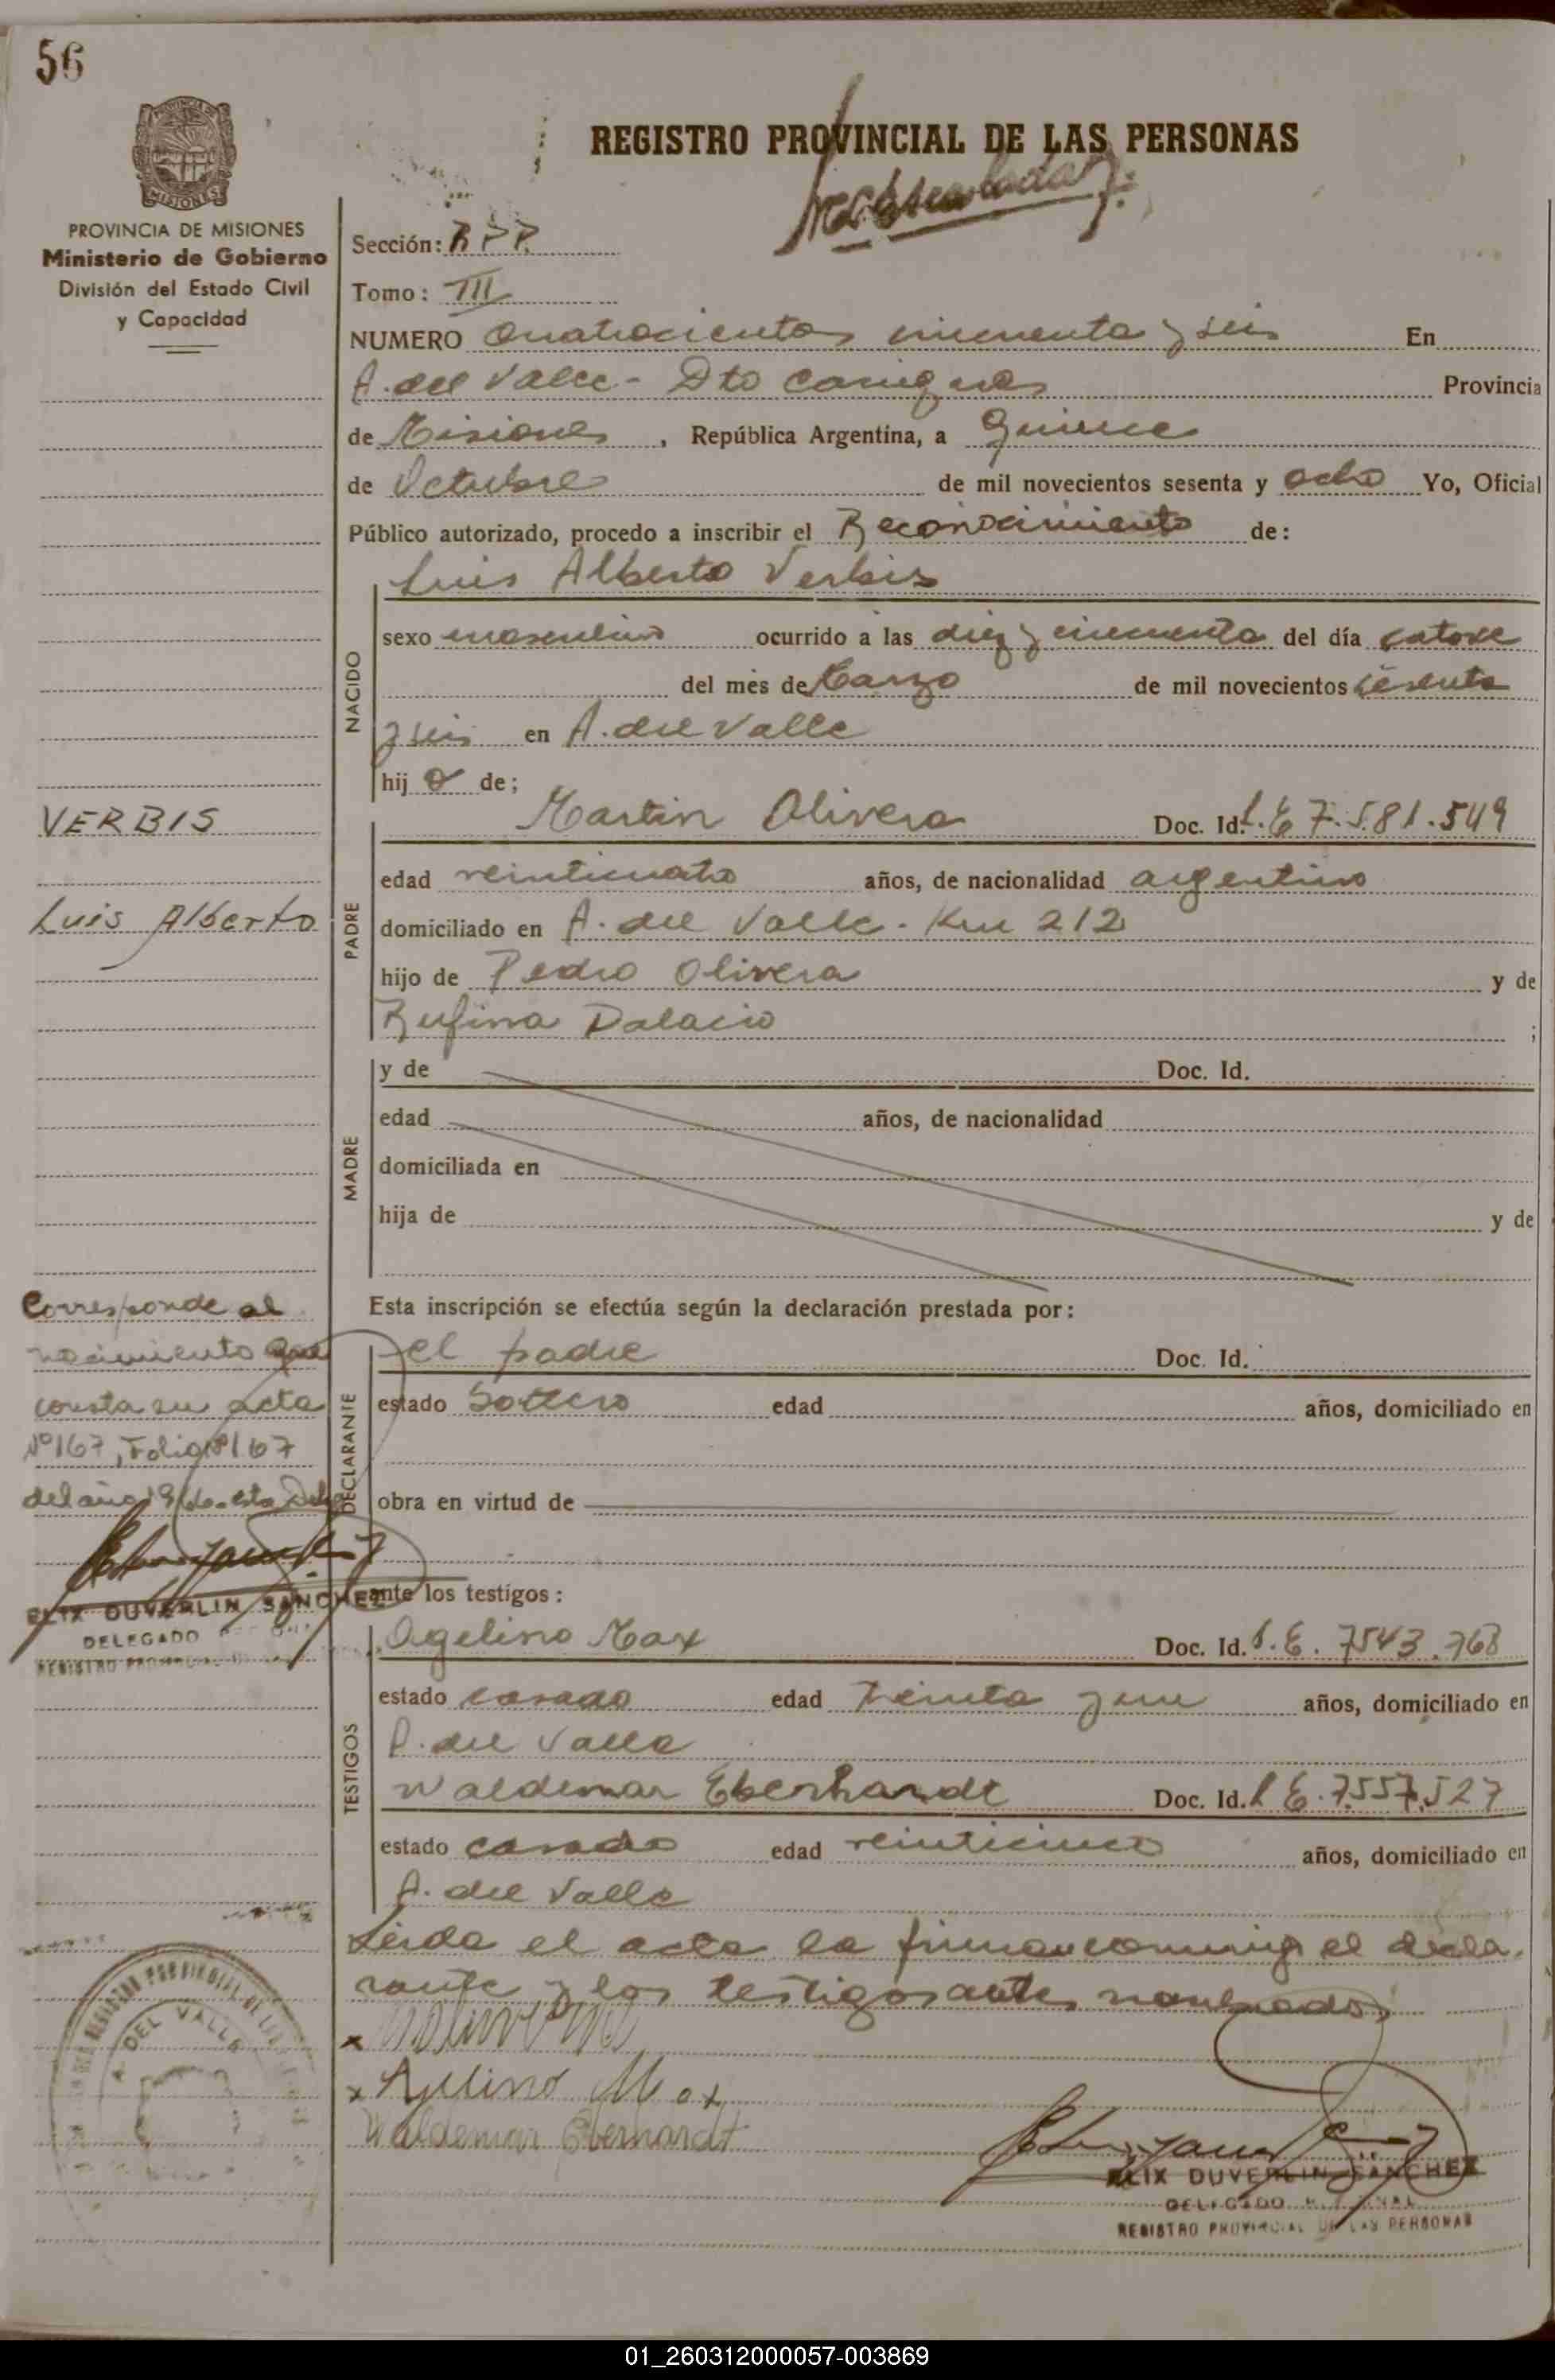 56
PROVINCIA DE MISIONES
Ministerio de Gobierno
División del Estado Civil
y Capacidad
REGISTRO PROVINCIAL DE LAS PERSONAS
Sección: RPP.
Tomo: III
NUMERO Cuatrocientos cincuenta y seis En
A. del Valle - Dto Cainguas Provincia
de Misiones, República Argentina, a Quince
de Octubre de mil novecientos sesenta y ocho Yo, Oficial
Público autorizado, procedo a inscribir el Reconocimiento de:
Luis Alberto Verbis
NACIDO
sexo masculino ocurrido a las diez y cincuenta del día catorce
del mes de Marzo de mil novecientos sesenta
y seis en A. del Valle
hij o de;
VERBIS
Luis Alberto
PADRE
Martin Olivera Doc. Id. L.E 7.581.549
edad veinticuatro años, de nacionalidad argentino
domiciliado en A. del Valle - Km 212
hijo de Pedro Olivera y de
Rufina Dalacio ;
MADRE
y de Doc. Id.
edad años, de nacionalidad
domiciliada en
hija de y de
Corresponde al
nacimiento que
consta en acta
Nº 167, Folio Nº 167
del año esta
Esta inscripción se efectúa según la declaración prestada por:
DECLARANTE
el padre Doc. Id.
estado Soltero edad años, domiciliado en
obra en virtud de
ELIX DUVERLIN SANCHEZ
DELEGADO
REGISTRO PROVINCIAL
ante los testigos:
TESTIGOS
Agelino Max Doc. Id. L.E. 7543.768
estado casado edad treinta y un años, domiciliado en
A. del Valle
Waldemar Eberhardt Doc. Id. L E. 7.557.527
estado casado edad veinticinco años, domiciliado en
A. del Valle
Leida el acta la firman conmigo el decla-
rante y los testigos antes nombrados
x
x Agelino Max
Waldemar Eberhardt
A. DEL VALLE
ELIX DUVERLIN SANCHEZ
DELEGADO
REGISTRO PROVINCIAL DE LAS PERSONAS
01_260312000057-003869